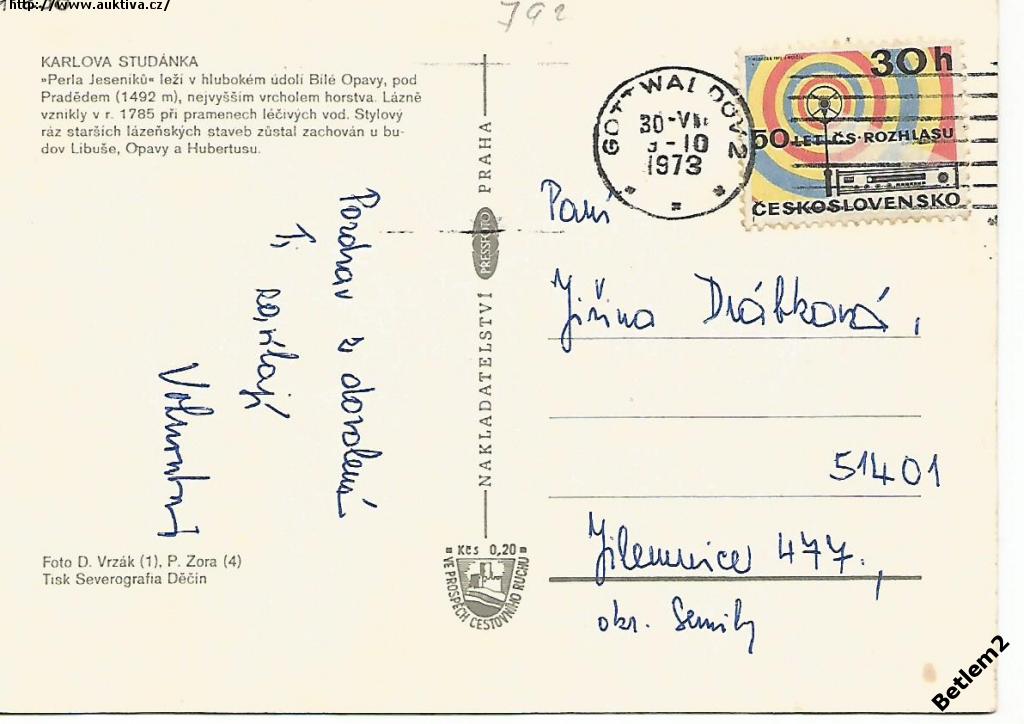 http://www.auktiva.cz/
792
KARLOVA STUDÁNKA
»Perla Jeseníků« leží v hlubokém údolí Bílé Opavy, pod
Pradědem (1492 m), nejvyšším vrcholem horstva. Lázně
vznikly v r. 1785 při pramenech léčivých vod. Stylový
ráz starších lázeňských staveb zůstal zachován u bu-
dov Libuše, Opavy a Hubertusu.
Pozdrav z dovolené
Ti
Foto D. Vrzák (1), P. Zora (4)
Tisk Severografia Děčín
NAKLADATELSTVÍ PRESSFOTO PRAHA
Kčs 0,20
VE PROSPĚCH CESTOVNÍHO RUCHU
GOTTWALDOV 2
30-VII
-10
1973
30 h
50 LET ČS. ROZHLASU
ČESKOSLOVENSKO
Paní
Jiřina Drábková,
51401
Jilemnice 477,
okr. Semily
Betlem2